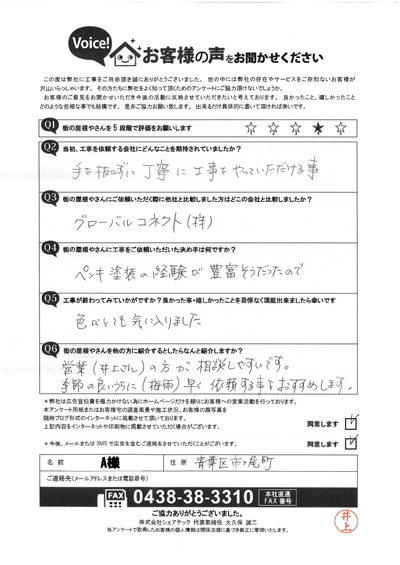 Voice!
お客様の声をお聞かせください
この度は弊社に工事をご用命頂き誠にありがとうございました。世の中には弊社の存在やサービスをご存知ないお客様が
沢山いらっしゃいます。その方たちに弊社をよく知って頂くためのアンケートにご協力頂けないでしょうか。
お客様のご意見をお聞かせいただき今後の活動に反映させていただきたいと考えております。良かったこと、嬉しかったこと
どのような些細な事でも結構です。是非ご協力お願い致します。出来るだけ具体的に書いて頂ければ幸いです。
Q1 街の屋根やさんを5段階で評価をお願いします ☆ ☆ ☆ ★ ☆
Q2 当初、工事を依頼する会社にどんなことを期待されていましたか?
手を抜かずに丁寧に工事をやっていただける事
Q3 街の屋根やさんにご依頼いただく際に他社と比較しました方はどこの会社と比較しましたか?
グローバルコネクト(株)
Q4 街の屋根やさんに工事をご依頼いただいた決め手は何ですか?
ペンキ塗装の経験が豊富そうだったので
Q5 工事が終わってみていかがですか?良かった事・嬉しかったことを忌憚なく頂戴出来ましたら幸いです
色がとても気に入りました
Q6 街の屋根やさんを他の方に紹介するとしたらなんと紹介しますか?
営業(井上さん)の方が相談しやすいです。
季節の良いうちに(梅雨)早く依頼する事をおすすめします。
※弊社は広告宣伝費を極力かけない為にホームページだけを頼りにお客様への営業活動を行っております。
本アンケート用紙またはお客様宅の調査風景や施工状況、お客様の顔写真を
随時ブログ形式のインターネットに掲載させて頂いております。
上記内容をインターネットや印刷物に掲載させていただく場合がございます。
同意します
※今後、メールまたはSMSで広告を含むご連絡をさせていただくことがございます。
同意します
名前 A様 住所 青葉区市ヶ尾町
ご連絡先(メールアドレスまたは電話番号)
FAX 0438-38-3310 本社直通 FAX番号
ご協力ありがとうございました。
株式会社シェアテック 代表取締役 大久保 誠二
当アンケートで取得したお客様の個人情報は関係法規に基づき厳正に管理いたします。
井上